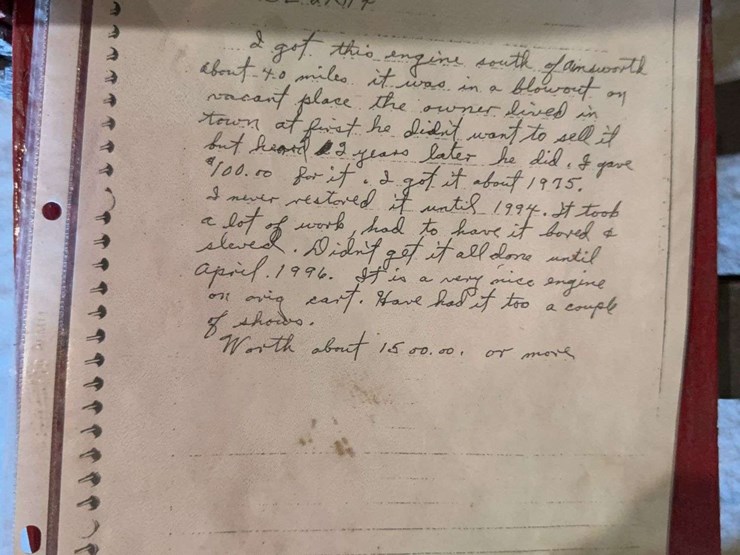 I got this engine south of Ainsworth
about 40 miles it was in a blowout on
vacant place the owner lived in
town at first he didn't want to sell it
but 2 years later he did. I gave
$100.00 for it. I got it about 1975.
I never restored it until 1994. It took
a lot of work, had to have it bored &
sleved. Didn't get it all done until
April. 1996. It is a very nice engine
on orig cart. Have had it too a couple
of shows.
Worth about 1500.00. or more